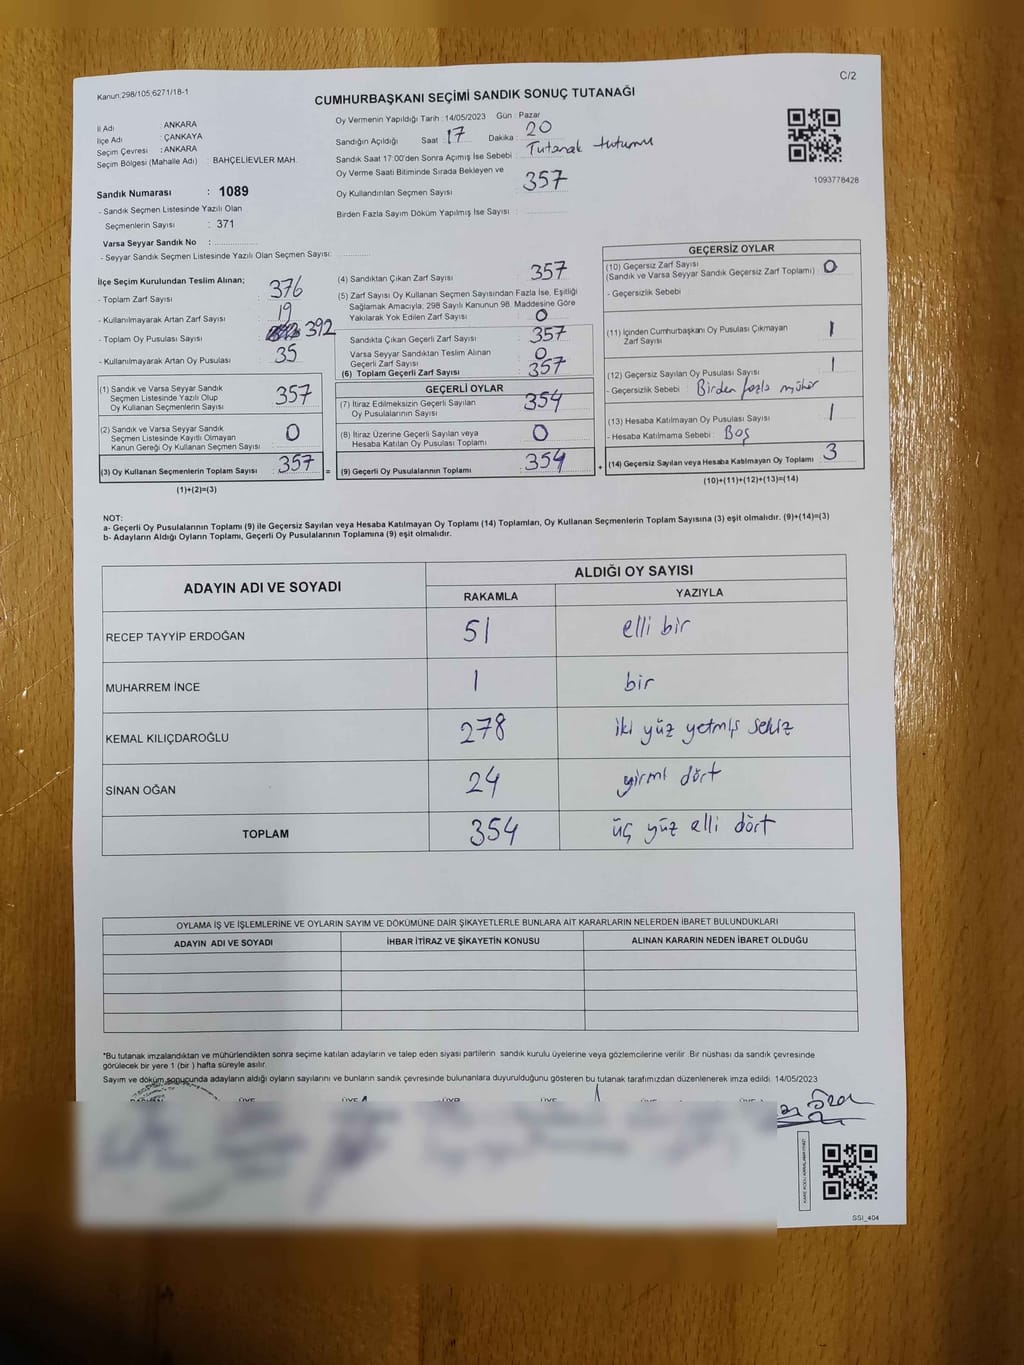 C/2
Kanun:298/105;6271/18-1
CUMHURBAŞKANI SEÇİMİ SANDIK SONUÇ TUTANAĞI
İl Adı : ANKARA
İlçe Adı : ÇANKAYA
Seçim Çevresi : ANKARA
Seçim Bölgesi (Mahalle Adı) : BAHÇELİEVLER MAH.
Sandık Numarası : 1089
- Sandık Seçmen Listesinde Yazılı Olan
Seçmenlerin Sayısı : 371
Varsa Seyyar Sandık No :
- Seyyar Sandık Seçmen Listesinde Yazılı Olan Seçmen Sayısı:
Oy Vermenin Yapıldığı Tarih : 14/05/2023 Gün : Pazar
Sandığın Açıldığı Saat : 17 Dakika : 20
Sandık Saat 17:00'den Sonra Açılmış İse Sebebi : Tutanak tutumu
Oy Verme Saati Bitiminde Sırada Bekleyen ve
Oy Kullandırılan Seçmen Sayısı : 357
Birden Fazla Sayım Döküm Yapılmış İse Sayısı :
1093778428
İlçe Seçim Kurulundan Teslim Alınan;
- Toplam Zarf Sayısı : 376
- Kullanılmayarak Artan Zarf Sayısı : 19
- Toplam Oy Pusulası Sayısı : 392
- Kullanılmayarak Artan Oy Pusulası : 35
(1) Sandık ve Varsa Seyyar Sandık
Seçmen Listesinde Yazılı Olup
Oy Kullanan Seçmenlerin Sayısı : 357
(2) Sandık ve Varsa Seyyar Sandık
Seçmen Listesinde Kayıtlı Olmayan
Kanun Gereği Oy Kullanan Seçmen Sayısı : 0
(3) Oy Kullanan Seçmenlerin Toplam Sayısı : 357 =
(1)+(2)=(3)
(4) Sandıktan Çıkan Zarf Sayısı : 357
(5) Zarf Sayısı Oy Kullanan Seçmen Sayısından Fazla İse, Eşitliği
Sağlamak Amacıyla, 298 Sayılı Kanunun 98. Maddesine Göre
Yakılarak Yok Edilen Zarf Sayısı : 0
Sandıkta Çıkan Geçerli Zarf Sayısı : 357
Varsa Seyyar Sandıktan Teslim Alınan
Geçerli Zarf Sayısı : 0
(6) Toplam Geçerli Zarf Sayısı : 357
GEÇERLİ OYLAR
(7) İtiraz Edilmeksizin Geçerli Sayılan
Oy Pusulalarının Sayısı : 354
(8) İtiraz Üzerine Geçerli Sayılan veya
Hesaba Katılan Oy Pusulası Toplamı : 0
(9) Geçerli Oy Pusulalarının Toplamı : 354 +
GEÇERSİZ OYLAR
(10) Geçersiz Zarf Sayısı : 0
(Sandık ve Varsa Seyyar Sandık Geçersiz Zarf Toplamı)
- Geçersizlik Sebebi :
(11) İçinden Cumhurbaşkanı Oy Pusulası Çıkmayan
Zarf Sayısı : 1
(12) Geçersiz Sayılan Oy Pusulası Sayısı : 1
- Geçersizlik Sebebi : Birden fazla mühür
(13) Hesaba Katılmayan Oy Pusulası Sayısı : 1
- Hesaba Katılmama Sebebi : Boş
(14) Geçersiz Sayılan veya Hesaba Katılmayan Oy Toplamı : 3
(10)+(11)+(12)+(13)=(14)
NOT:
a- Geçerli Oy Pusulalarının Toplamı (9) ile Geçersiz Sayılan veya Hesaba Katılmayan Oy Toplamı (14) Toplamları, Oy Kullanan Seçmenlerin Toplam Sayısına (3) eşit olmalıdır. (9)+(14)=(3)
b- Adayların Aldığı Oyların Toplamı, Geçerli Oy Pusulalarının Toplamına (9) eşit olmalıdır.
ADAYIN ADI VE SOYADI
ALDIĞI OY SAYISI
RAKAMLA YAZIYLA
RECEP TAYYİP ERDOĞAN 51 elli bir
MUHARREM İNCE 1 bir
KEMAL KILIÇDAROĞLU 278 iki yüz yetmiş sekiz
SİNAN OĞAN 24 yirmi dört
TOPLAM 354 üç yüz elli dört
OYLAMA İŞ VE İŞLEMLERİNE VE OYLARIN SAYIM VE DÖKÜMÜNE DAİR ŞİKAYETLERLE BUNLARA AİT KARARLARIN NELERDEN İBARET BULUNDUKLARI
ADAYIN ADI VE SOYADI İHBAR İTİRAZ VE ŞİKAYETİN KONUSU ALINAN KARARIN NEDEN İBARET OLDUĞU
*Bu tutanak imzalandıktan ve mühürlendikten sonra seçime katılan adayların ve talep eden siyasi partilerin sandık kurulu üyelerine veya gözlemcilerine verilir. Bir nüshası da sandık çevresinde
görülecek bir yere 1 (bir ) hafta süreyle asılır.
Sayım ve döküm sonucunda adayların aldığı oyların sayılarını ve bunların sandık çevresinde bulunanlara duyurulduğunu gösteren bu tutanak tarafımızdan düzenlenerek imza edildi. 14/05/2023
SSI_404